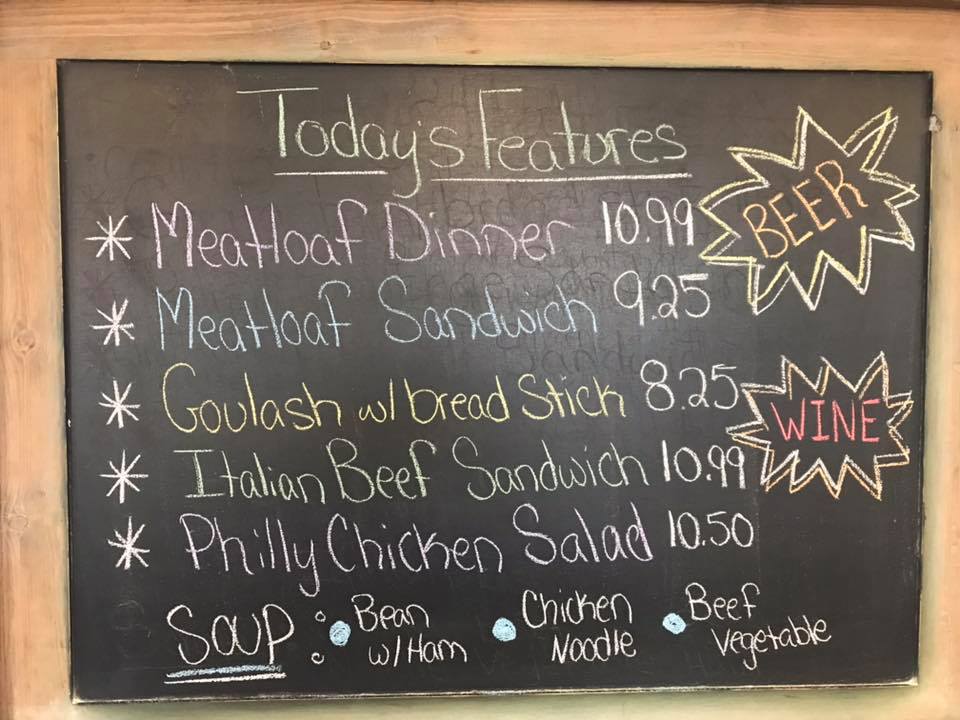 Today's Features
* Meatloaf Dinner 10.99
BEER
* Meatloaf Sandwich 9.25
* Goulash w/ bread Stick 8.25
WINE
* Italian Beef Sandwich 10.99
* Philly Chicken Salad 10.50
Soup: • Bean w/ Ham • Chicken Noodle • Beef Vegetable